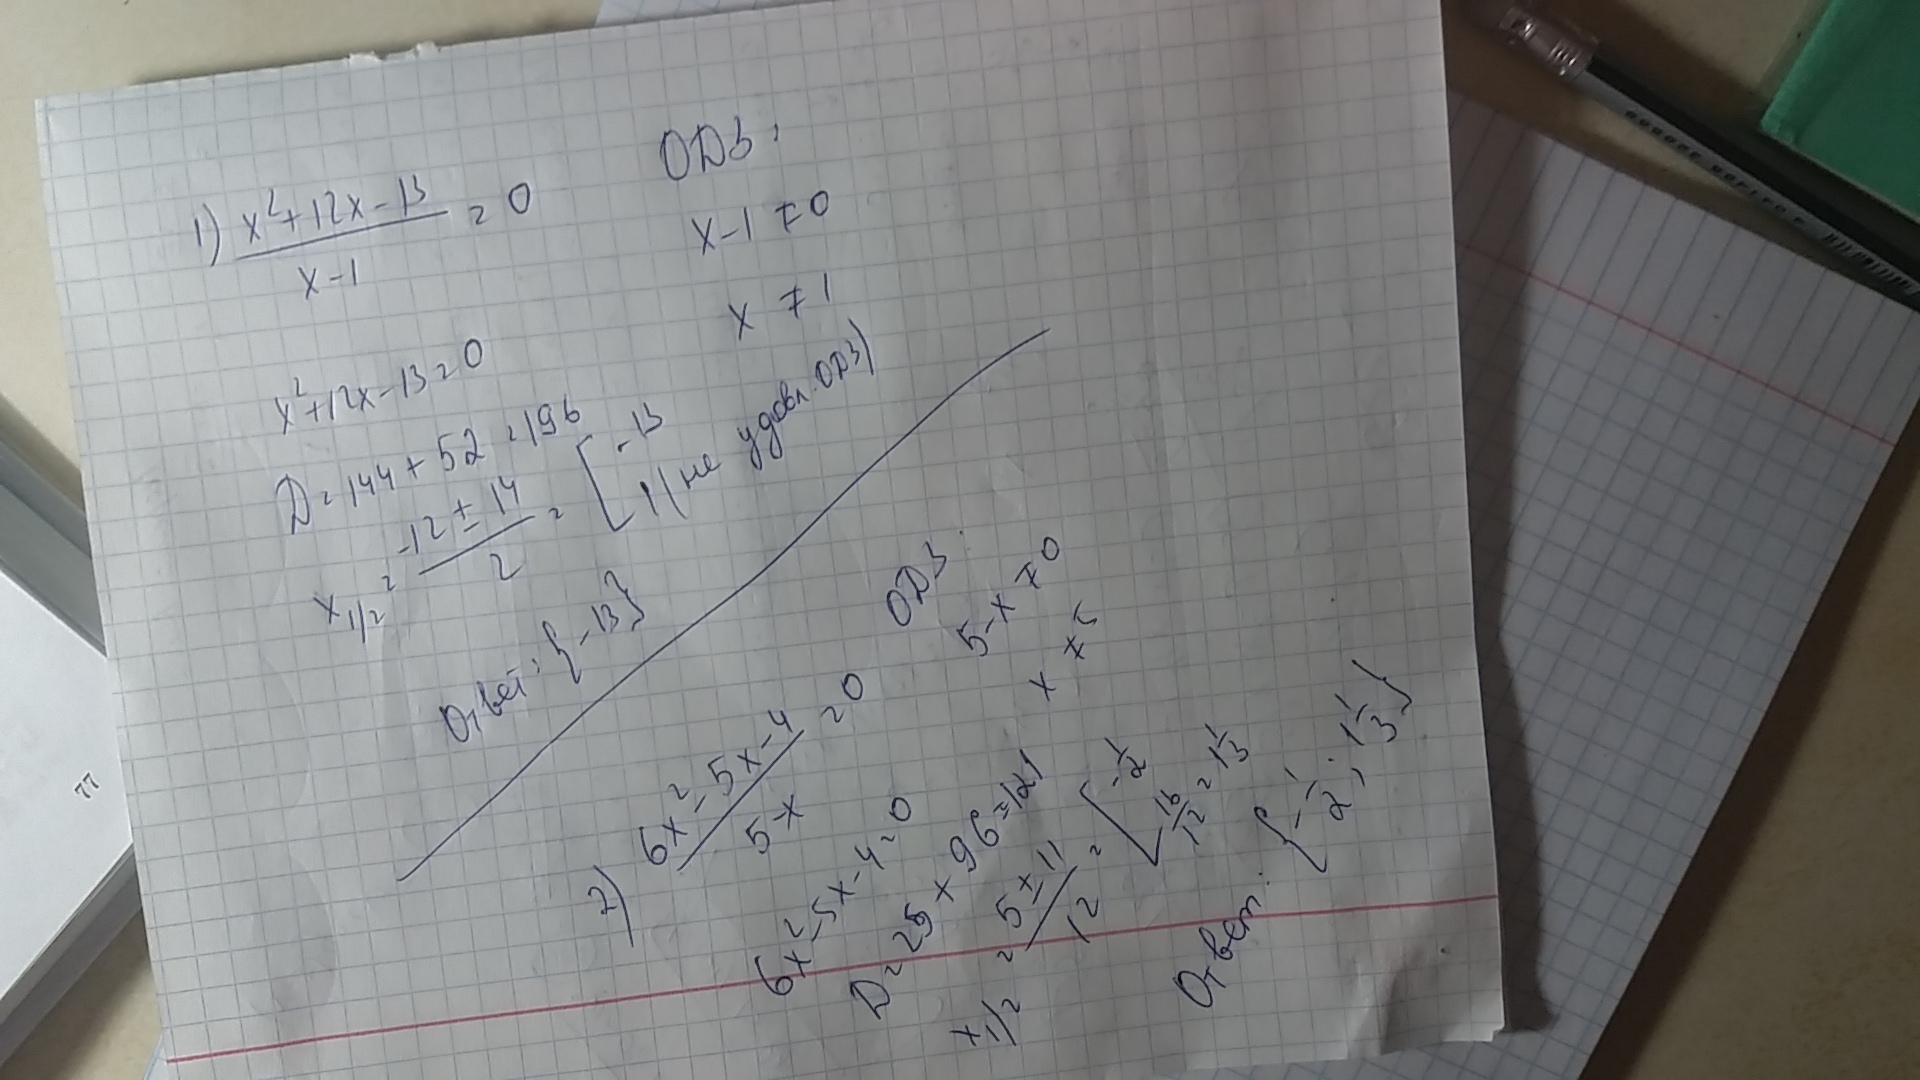 1) (x²+12x-13)/(x-1) = 0
ОДЗ:
x-1 ≠ 0
x ≠ 1
x²+12x-13=0
D=144+52=196
x1/2 = (-12 ± 14)/2 = [ -13
1 (не удовл. ОДЗ)
Ответ: {-13}
2) (6x²-5x-4)/(5-x) = 0
ОДЗ:
5-x ≠ 0
x ≠ 5
6x²-5x-4=0
D=25+96=121
x1/2 = (5±11)/12 = [ -1/2
16/12 = 1 1/3
Ответ: {-1/2; 1 1/3}
77